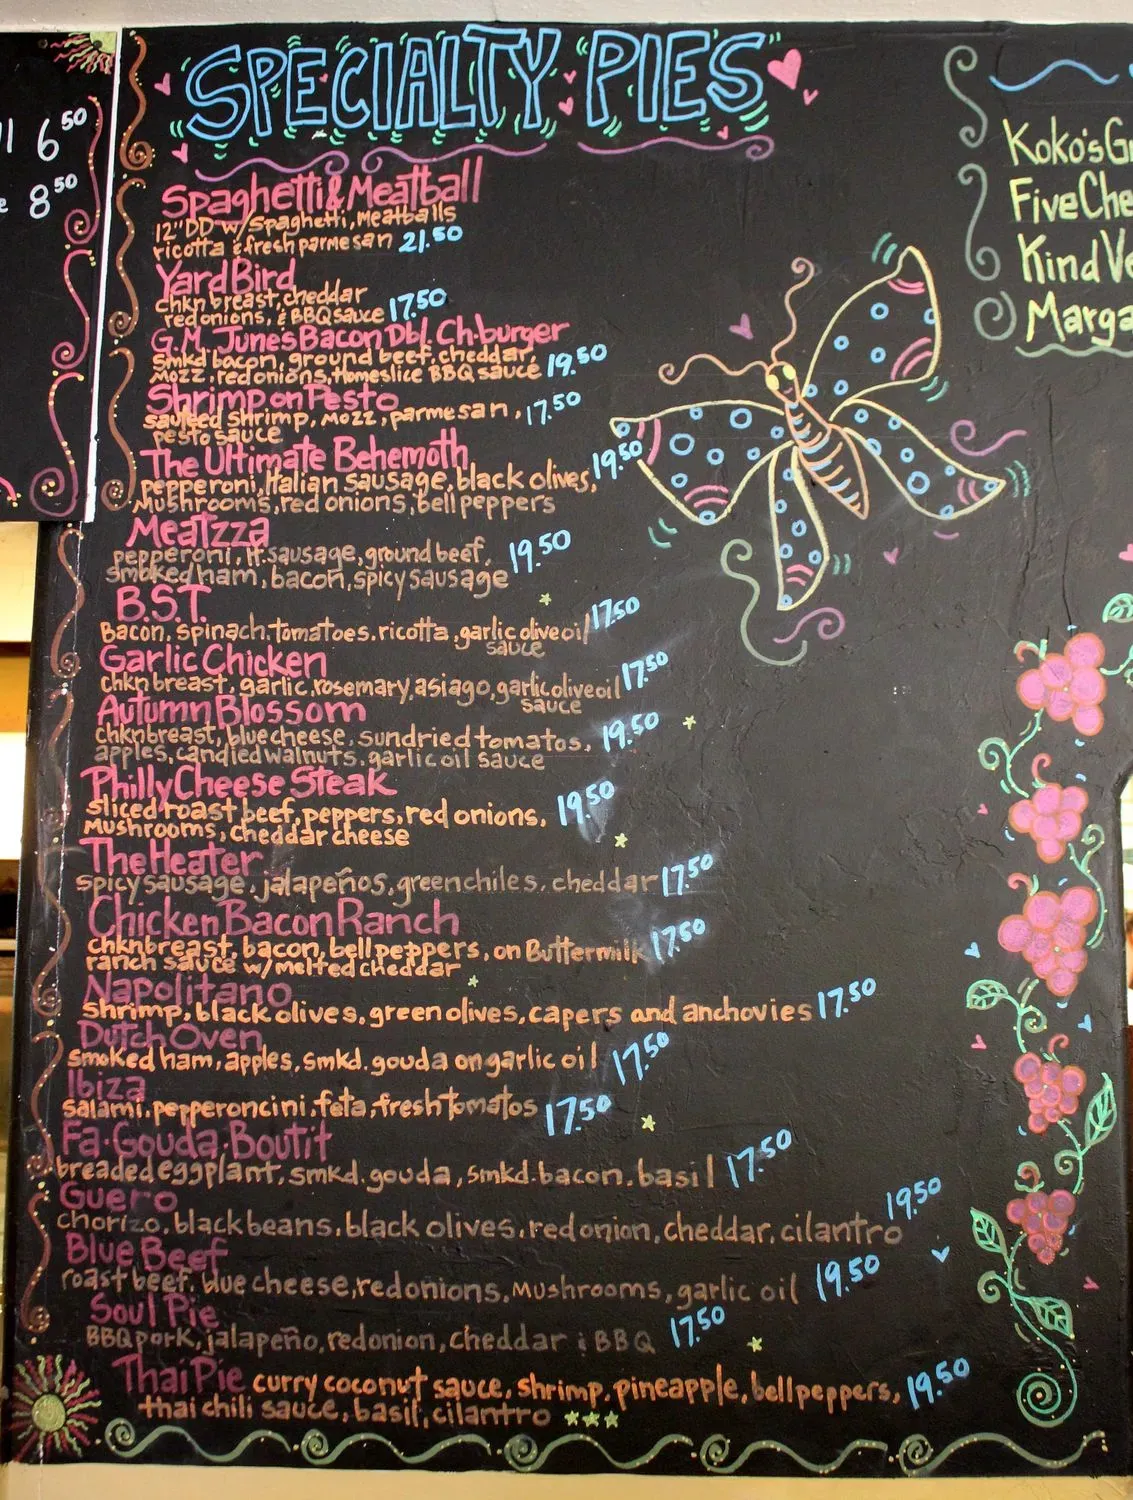 SPECIALTY PIES
Spaghetti & Meatball
12" DD w/ Spaghetti, Meatballs
ricotta & fresh parmesan 21.50
Yard Bird
chkn breast, cheddar
red onions, & BBQ sauce 17.50
G.M. June's Bacon Dbl. Ch·burger
smkd bacon, ground beef, cheddar,
mozz, red onions, Homeslice BBQ sauce 19.50
Shrimp on Pesto
sauteed shrimp, mozz, parmesan, 17.50
pesto sauce
The Ultimate Behemoth
pepperoni, Italian sausage, black olives, 19.50
Mushrooms, red onions, bell peppers
Meatzza
pepperoni, It. sausage, ground beef, 19.50
smoked ham, bacon, spicy sausage
B.S.T.
Bacon, spinach, tomatoes, ricotta, garlic olive oil 17.50
sauce
Garlic Chicken
chkn breast, garlic, rosemary, asiago, garlic olive oil 17.50
sauce
Autumn Blossom
chkn breast, blue cheese, sundried tomatos, 19.50
apples, candied walnuts, garlic oil sauce
Philly Cheese Steak
sliced roast beef, peppers, red onions, 19.50
Mushrooms, cheddar cheese
The Heater
spicy sausage, jalapeños, green chiles, cheddar 17.50
Chicken Bacon Ranch
chkn breast, bacon, bell peppers, on Buttermilk 17.50
ranch sauce w/ melted cheddar
Napolitano
Shrimp, black olives, green olives, capers and anchovies 17.50
Dutch Oven
smoked ham, apples, smkd. gouda on garlic oil 17.50
Ibiza
salami, pepperoncini, feta, fresh tomatos 17.50
Fa·Gouda·Boutit
breaded eggplant, smkd. gouda, smkd. bacon, basil 17.50
Guero
chorizo, black beans, black olives, red onion, cheddar, cilantro 19.50
Blue Beef
roast beef, blue cheese, red onions, Mushrooms, garlic oil 19.50
Soul Pie
BBQ pork, jalapeño, red onion, cheddar & BBQ 17.50
Thai Pie curry coconut sauce, shrimp, pineapple, bell peppers, 19.50
thai chili sauce, basil, cilantro
6.50
8.50
Koko's
Five
Kind